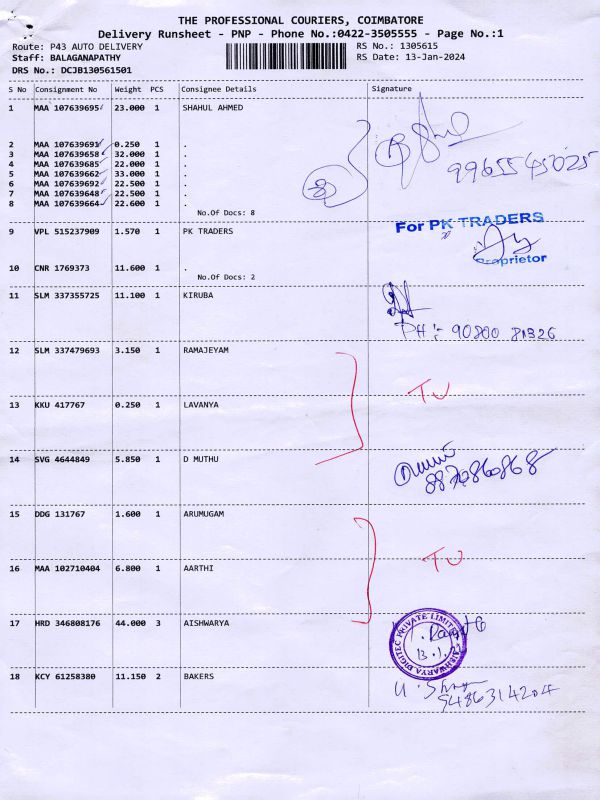 THE PROFESSIONAL COURIERS, COIMBATORE
Delivery Runsheet - PNP - Phone No.:0422-3505555 - Page No.:1
Route: P43 AUTO DELIVERY
RS No.: 1305615
Staff: BALAGANAPATHY
RS Date: 13-Jan-2024
DRS No.: DCJB130561501
S No Consignment No Weight PCS Consignee Details Signature
1 MAA 107639695 23.000 1 SHAHUL AHMED
2 MAA 107639691 0.250 1 .
3 MAA 107639658 32.000 1 .
4 MAA 107639685 22.000 1 .
5 MAA 107639662 33.000 1 .
6 MAA 107639692 22.500 1 .
7 MAA 107639648 22.500 1 .
8 MAA 107639664 22.600 1 .
No.Of Docs: 8
8
9965545025
9 VPL 515237909 1.570 1 PK TRADERS
For PK TRADERS
Proprietor
10 CNR 1769373 11.600 1 .
No.Of Docs: 2
11 SLM 337355725 11.100 1 KIRUBA
PH :- 90800 81326
12 SLM 337479693 3.150 1 RAMAJEYAM
TU
13 KKU 417767 0.250 1 LAVANYA
14 SVG 4644849 5.850 1 D MUTHU
8870860868
15 DDG 131767 1.600 1 ARUMUGAM
TU
16 MAA 102710404 6.800 1 AARTHI
17 HRD 346808176 44.000 3 AISHWARYA
AISHWARYA DIGITEC PRIVATE LIMITED
18 KCY 61258380 11.150 2 BAKERS
9486314204